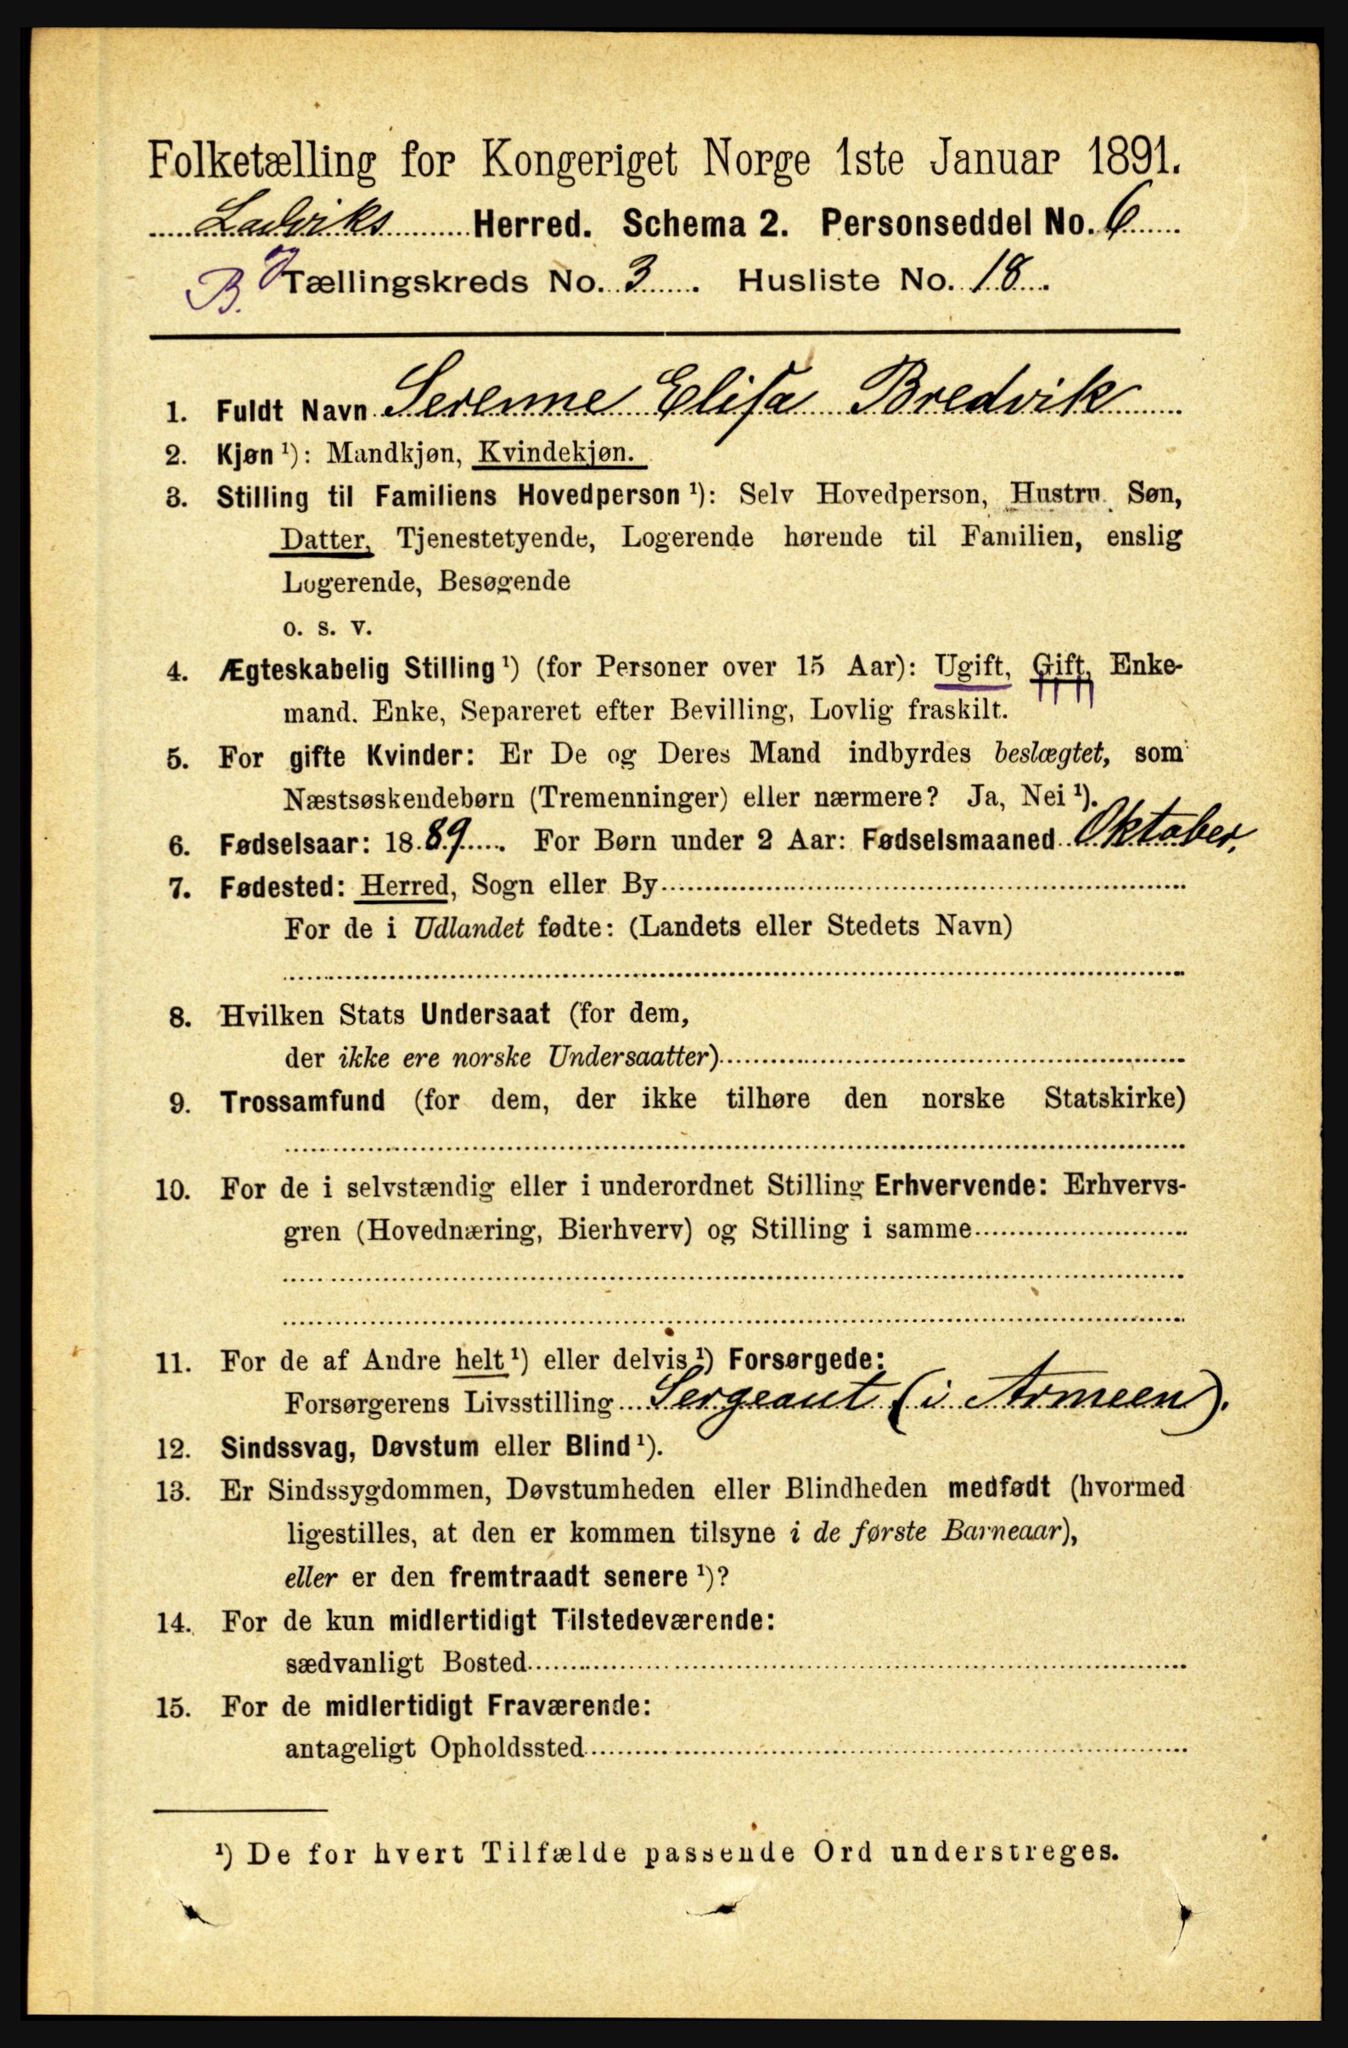 Folketælling for Kongeriget Norge 1ste Januar 1891.
Ladviks Herred. Schema 2. Personseddel No. 6
B. Tællingskreds No. 3. Husliste No. 18.
1. Fuldt Navn Serenne Elisa Bredvik
2. Kjøn ¹): Mandkjøn, Kvindekjøn.
3. Stilling til Familiens Hovedperson ¹): Selv Hovedperson, Hustru, Søn,
Datter, Tjenestetyende, Logerende hørende til Familien, enslig
Logerende, Besøgende
o. s. v.
4. Ægteskabelig Stilling ¹) (for Personer over 15 Aar): Ugift, Gift, Enke-
mand. Enke, Separeret efter Bevilling, Lovlig fraskilt.
5. For gifte Kvinder: Er De og Deres Mand indbyrdes beslægtet, som
Næstsøskendebørn (Tremenninger) eller nærmere? Ja, Nei ¹).
6. Fødselsaar: 1889. For Børn under 2 Aar: Fødselsmaaned Oktober.
7. Fødested: Herred, Sogn eller By
For de i Udlandet fødte: (Landets eller Stedets Navn)
8. Hvilken Stats Undersaat (for dem,
der ikke ere norske Undersaatter)
9. Trossamfund (for dem, der ikke tilhøre den norske Statskirke)
10. For de i selvstændig eller i underordnet Stilling Erhvervende: Erhvervs-
gren (Hovednæring, Bierhverv) og Stilling i samme
11. For de af Andre helt ¹) eller delvis ¹) Forsørgede:
Forsørgerens Livsstilling Sergeant (i Armeen).
12. Sindssvag, Døvstum eller Blind ¹).
13. Er Sindssygdommen, Døvstumheden eller Blindheden medfødt (hvormed
ligestilles, at den er kommen tilsyne i de første Barneaar),
eller er den fremtraadt senere ¹)?
14. For de kun midlertidigt Tilstedeværende:
sædvanligt Bosted
15. For de midlertidigt Fraværende:
antageligt Opholdssted
¹) De for hvert Tilfælde passende Ord understreges.